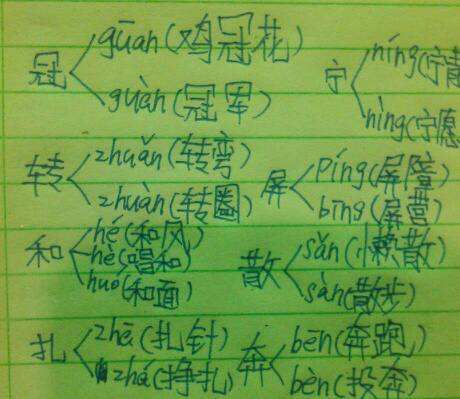 gūan(鸡冠花) níng(宁
冠 宁
guàn(冠军) nìng(宁愿
zhuǎn(转弯) píng(屏障)
转 屏
zhuàn(转圈) bīng(屏营)
hé(和风) sǎn(懒散)
和 hè(唱和) 散
huó(和面) sàn(散步)
zhā(扎针) bēn(奔跑)
扎 奔
zhá(挣扎) bèn(投奔)